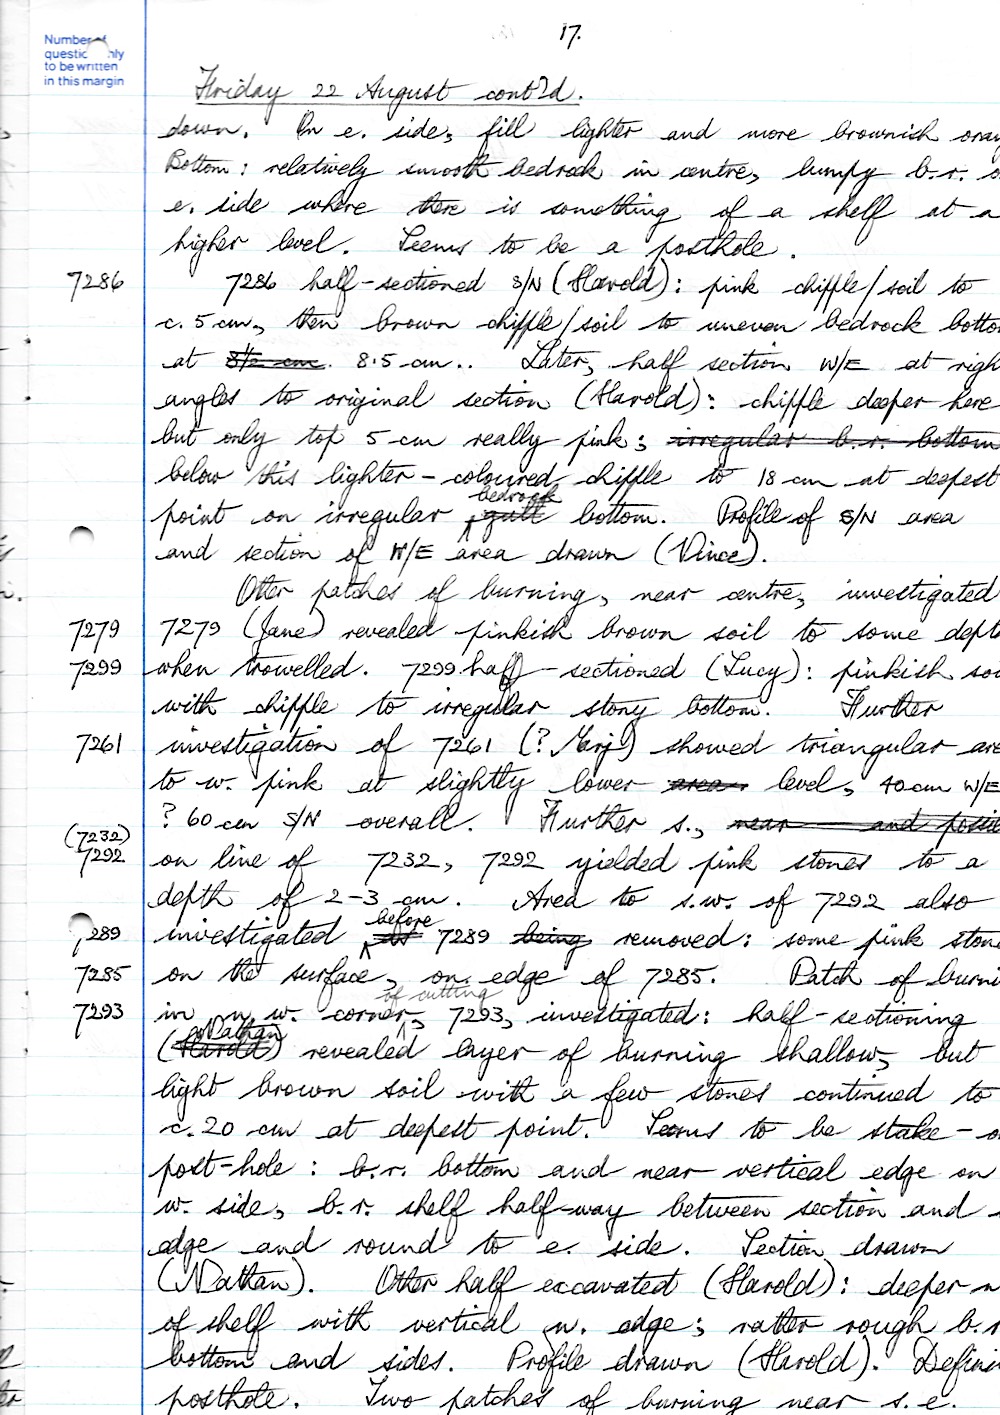 17.
Number of
question only
to be written
in this margin
Friday 22 August cont'd.
down. On e. side, fill lighter and more brownish oran
Bottom: relatively smooth bedrock in centre, bumpy b.r. o
e. side where there is something of a shelf at a
higher level. Seems to be a posthole.
7286 7286 half-sectioned S/N (Harold): pink chipple/soil to
c. 5 cm, then brown chipple/soil to uneven bedrock botto
at 8.5 cm.. Later, half section W/E at righ
angles to original section (Harold): chipple deeper here
but only top 5 cm really pink; irregular b.r. bottom
below this lighter-coloured chipple to 18 cm at deepest
point on irregular bedrock bottom. Profile of S/N area
and section of W/E area drawn (Vince).
Other patches of burning, near centre, investigated
7279 7279 (Jane) revealed pinkish brown soil to some dept
7299 when trowelled. 7299 half-sectioned (Lucy): pinkish soi
with chipple to irregular stony bottom. Further
7261 investigation of 7261 (? Marj) showed triangular are
to w. pink at slightly lower area level, 40 cm W/E
? 60 cm S/N overall. Further s., near and possi
(7232)
7292 on line of 7232, 7292 yielded pink stones to a
depth of 2-3 cm. Area to s.w. of 7292 also
7289 investigated before 7289 being removed: some pink stone
7285 on the surface, on edge of 7285. Patch of burni
of cutting
7293 in n.w. corner, 7293, investigated: half-sectioning
Nathan
(Harold) revealed layer of burning shallow, but
light brown soil with a few stones continued to
c. 20 cm at deepest point. Seems to be stake- o
post-hole: b.r. bottom and near vertical edge on
w. side, b.r. shelf half-way between section and
edge and round to e. side. Section drawn
(Nathan). Other half excavated (Harold): deeper n
of shelf with vertical n. edge; rather rough b.r
bottom and sides. Profile drawn (Harold). Defini
posthole. Two patches of burning near s.e.